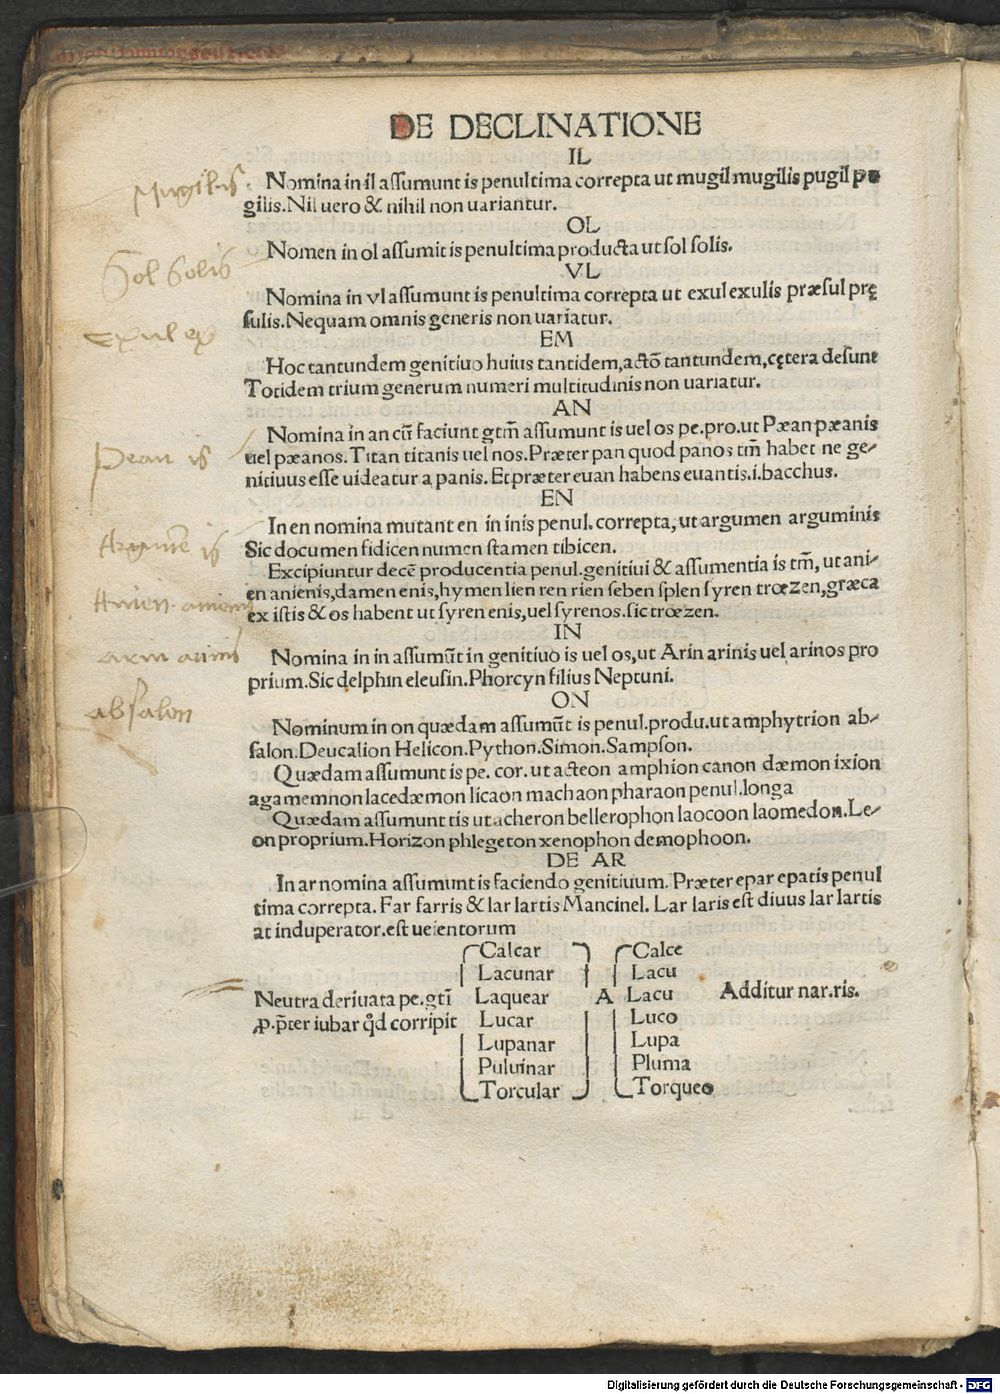 DE DECLINATIONE
IL
Nomina in il aſſumunt is penultima correpta ut mugil mugilis pugil pu
gilis. Nil uero & nihil non uariantur.
OL
Nomen in ol aſſumit is penultima producta ut ſol ſolis.
VL
Nomina in vl aſſumunt is penultima correpta ut exul exulis præſul prę
ſulis. Nequam omnis generis non uariatur.
EM
Hoc tantundem genitiuo huius tantidem, actō tantundem, cętera deſunt
Totidem trium generum numeri multitudinis non uariatur.
AN
Nomina in an cū faciunt gtm̄ aſſumunt is uel os pe.pro.ut Pæan pæanis
uel pæanos. Titan titanis uel nos. Præter pan quod panos tm̄ habet ne ge-
nitiuus eſſe uideatur a panis. Et præter euan habens euantis.i.bacchus.
EN
In en nomina mutant en in inis penul. correpta, ut argumen arguminis
Sic documen fidicen numen ſtamen tibicen.
Excipiuntur decē producentia penul.genitiui & aſſumentia is tm̄, ut ani-
en anienis, damen enis, hymen lien ren rien ſeben ſplen ſyren trœzen, græca
ex iſtis & os habent ut ſyren enis, uel ſyrenos.ſic trœzen.
IN
Nomina in in aſſumūt in genitiuo is uel os, ut Arin arinis uel arinos pro
prium. Sic delphin eleuſin. Phorcyn filius Neptuni.
ON
Nominum in on quædam aſſumūt is penul.produ.ut amphytrion ab-
ſalon. Deucalion Helicon. Python. Simon. Sampſon.
Quædam aſſumunt is pe. cor. ut acteon amphion canon dæmon ixion
agamemnon lacedæmon licaon machaon pharaon penul.longa
Quædam aſſumunt tis ut acheron bellerophon laocoon laomedon. Le-
on proprium. Horizon phlegeton xenophon demophoon.
DE AR
In ar nomina aſſumunt is faciendo genitiuum. Præter epar epatis penul
tima correpta. Far farris & lar lartis Mancinel. Lar laris eſt diuus lar lartis
at induperator.eſt ueientorum
Neutra deriuata pe.gtī
ꝓ.p̄ter iubar qd̄ corripit
Calcar
Lacunar
Laquear
Lucar
Lupanar
Puluinar
Torcular
A
Calce
Lacu
Lacu
Luco
Lupa
Pluma
Torqueo
Additur nar.ris.
Mugilis
Sol Solis
Exul ex
Pean is
Argumē is
Anien. anienis
arin arinis
abſalon
Digitalisierung gefördert durch die Deutsche Forschungsgemeinschaft - DFG